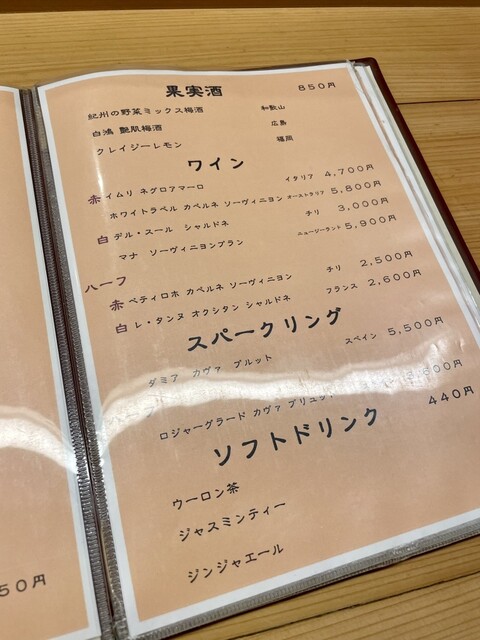 果実酒 850円
紀州の野菜ミックス梅酒 和歌山
白鴻 艶肌梅酒 広島
クレイジーレモン 福岡
ワイン
赤 イムリ ネグロアマーロ イタリア 4,700円
ホワイトラベル カベルネ ソーヴィニヨン オーストラリア 5,800円
白 デル・スール シャルドネ チリ 3,000円
マナ ソーヴィニヨンブラン ニュージーランド 5,900円
ハーフ
赤 ペティロホ カベルネ ソーヴィニヨン チリ 2,500円
白 レ・タンヌ オクシタン シャルドネ フランス 2,600円
スパークリング
ダミア カヴァ ブルット スペイン 5,500円
ロジャーグラード カヴァ ブリュット 600円
ソフトドリンク 440円
ウーロン茶
ジャスミンティー
ジンジャエール
50円